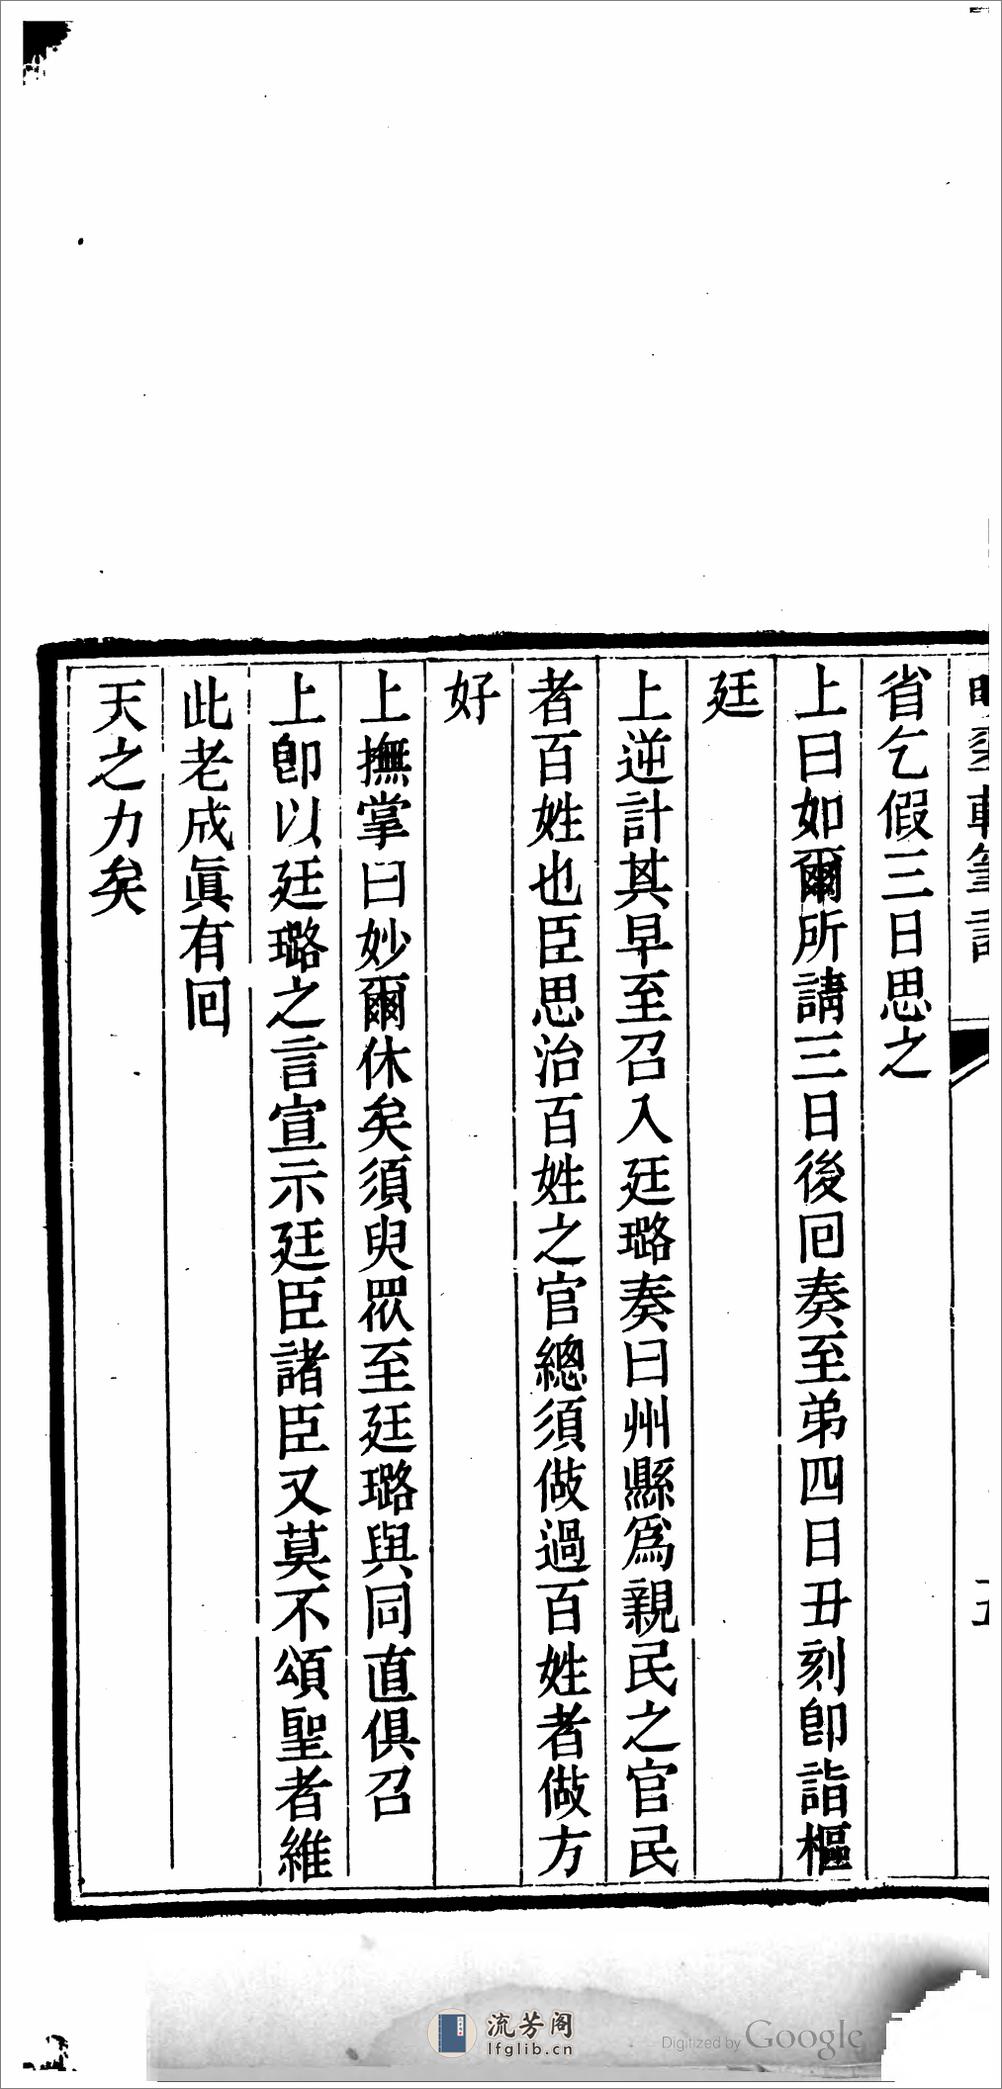 省乞假三日思之
上曰如爾所請三日後回奏至弟四日丑刻卽詣樞
廷
上逆計其早至召入廷璐奏曰州縣爲親民之官民
者百姓也臣思治百姓之官總須做過百姓者做方
好
上撫掌曰妙爾休矣須臾眾至廷璐與同直俱召
上卽以廷璐之言宣示廷臣諸臣又莫不頌聖者維
此老成眞有回
天之力矣
流芳阁
lfglib.cn
Digitized by Google